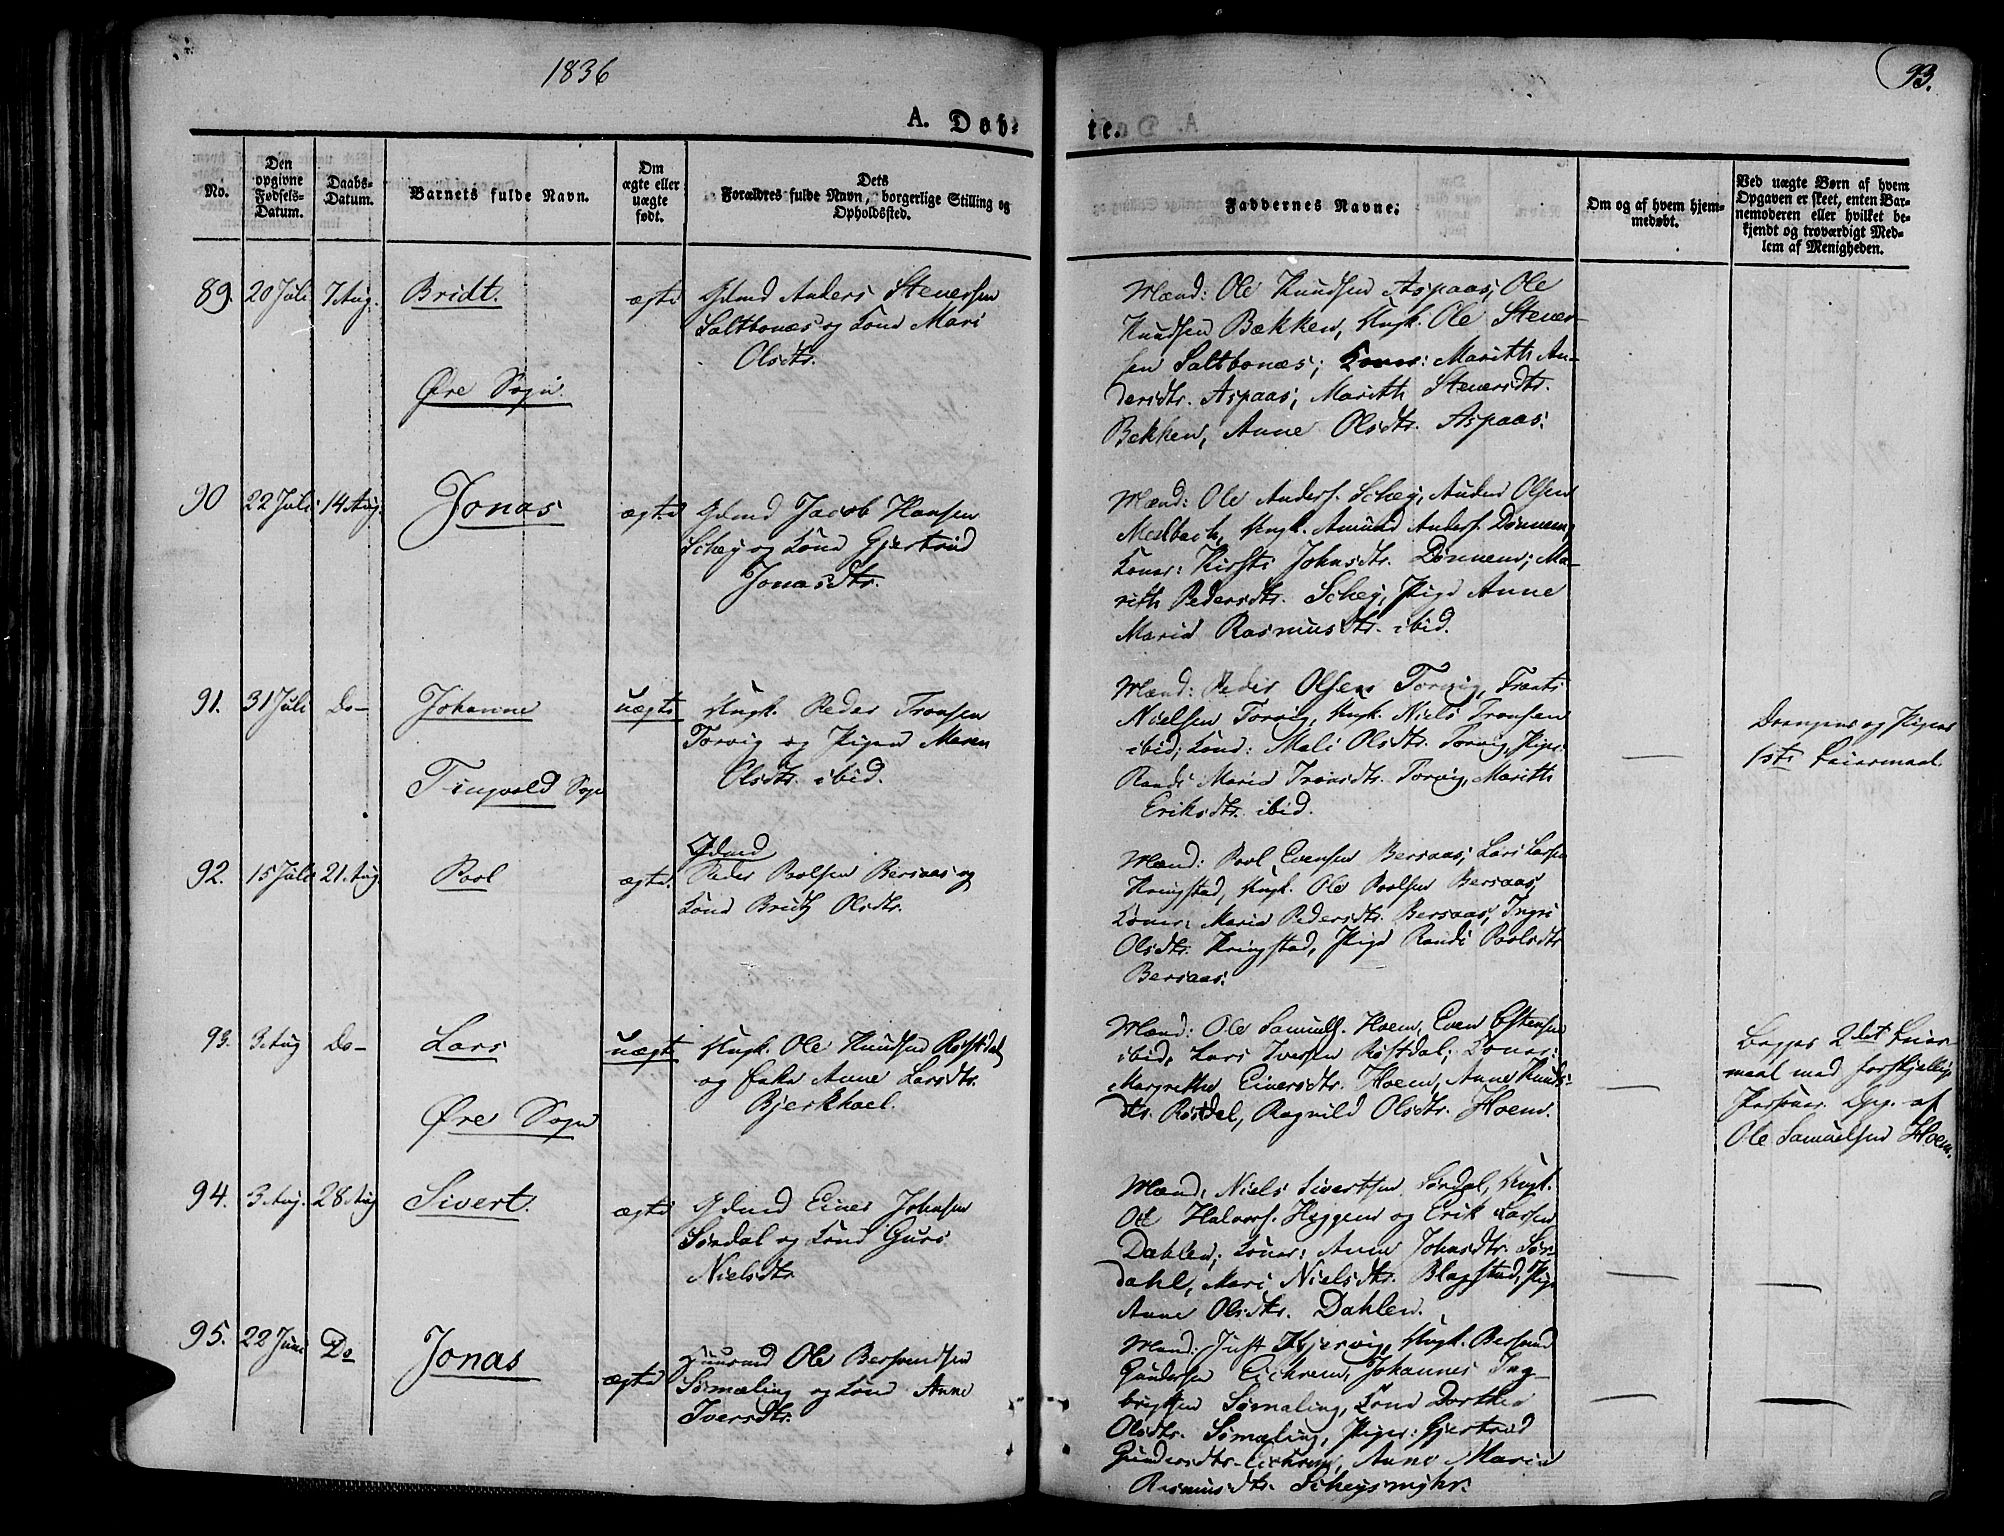 1836
93.
A. Døb-
te.
No.
Den opgivne Fødsels-Datum.
Daabs-Datum.
Barnets fulde Navn.
Om ægte eller uægte født.
Dets Forældres fulde Navn, borgerlige Stilling og Opholdssted.
Faddernes Navne.
Om og af hvem hjem-medøbt.
Ved uægte Børn af hvem Opgaven er skeet, enten Bar-nemoderen eller hvilket be-kjendt og troværdigt Med-lem af Menigheden.
89. 20 Juli 7 Aug. Bridt. ægte Gdmd Anders Stenersen
Saltbonæs og Kone Mari
Olsdtr.
Øre Sogn.
Mænd: Ole Knudsen Aspaas, Ole
Knudsen Bækken, Ungk. Ole Stener-
sen Saltbonæs; Koner: Marith An-
dersdtr. Aspaas, Marith Stenersdtr.
Bekken, Anne Olsdtr. Aspaas.
90 22 Juli 14 Aug. Jonas ægte Gdmd Jacob Hansen
Schey og Kone Gjertrud
Jonasdtr.
Mænd: Ole Anders. Schey, Anders Olsen
Medbach, Ungk. Amund Anders. Dønnem,
Koner: Kirsti Johnsdtr. Dønnem, Ma-
rith Pedersdtr. Schey, Pige Anne
Marie Rasmusdtr. ibid.
91. 31 Juli Do- Johanne uægte Ungk. Peder Tronsen
Torvig og Pigen Maren
Olsdtr. ibid.
Tingvold Sogn
Mænd: Peder Olsen Torvig, Frants
Nielsen Torvig, Ungk. Niels Tronsen
ibid; Kone: Mali Olsdtr. Torvig, Pige:
Randi Marie Tronsdtr. Torvig, Marith
Eriksdtr. ibid.
Drengens og Pigens
1ste Leiermaal.
92. 15 Juli 21 Aug. Povl ægte. Gdmd
Peder Povlsen Bersaas og
Kone Brith Olsdtr.
Mænd: Povl Evensen Bersaas, Lars Larsen
Kringstad, Ungk. Ole Povlsen Bersaas,
Koner: Marie Pedersdtr. Bersaas, Ingri
Olsdtr. Kringstad, Pige Randi Povlsdtr
Bersaas.
93. 3 Aug Do- Lars uægte Ungk. Ole Knudsen Røtsdal
og Enke Anne Larsdtr.
Bjerkhoel.
Øre Sogn
Mænd: Ole Samuels. Hoem, Even Estensen
ibid, Lars Iversen Røstdal; Koner:
Margrethe Einersdtr. Hoem, Anne Knuds-
dtr. Røstdal, Ragnild Olsdtr. Hoem.
Begges 2det Leier
maal med forskjellige
Personer. Opg. af
Ole Samuelsen Hoem.
94. 3 Aug. 28 Aug Sivert. ægte Gdmd Einer Johnsen
Sørdal og Kone Guro
Nielsdtr
Mænd, Niels Sivertsen Sørdal, Ungk.
Ole Halvors. Heggem og Erik Larsen
Dahlen; Koner: Anne Johnsdtr. Sør-
dahl, Mari Nielsdtr. Blagstad, Pige
Anne Olsdtr. Dahlen.
95. 22 Juni Do Jonas ægte Ole Bersvendsen
Sømæling og Kone Anne
Iversdtr.
Mænd: Just Kjørvig, Ungk. Bersvend
Gundersen Eichrem, Johannes Ing-
brigtsen Sømæling, Kone Dorthea
Olsdtr. Sømæling, Piger: Gjertrud
Gundersdtr. Eichrem, Anne Marie
Rasmusdtr. Scheysmyhr.